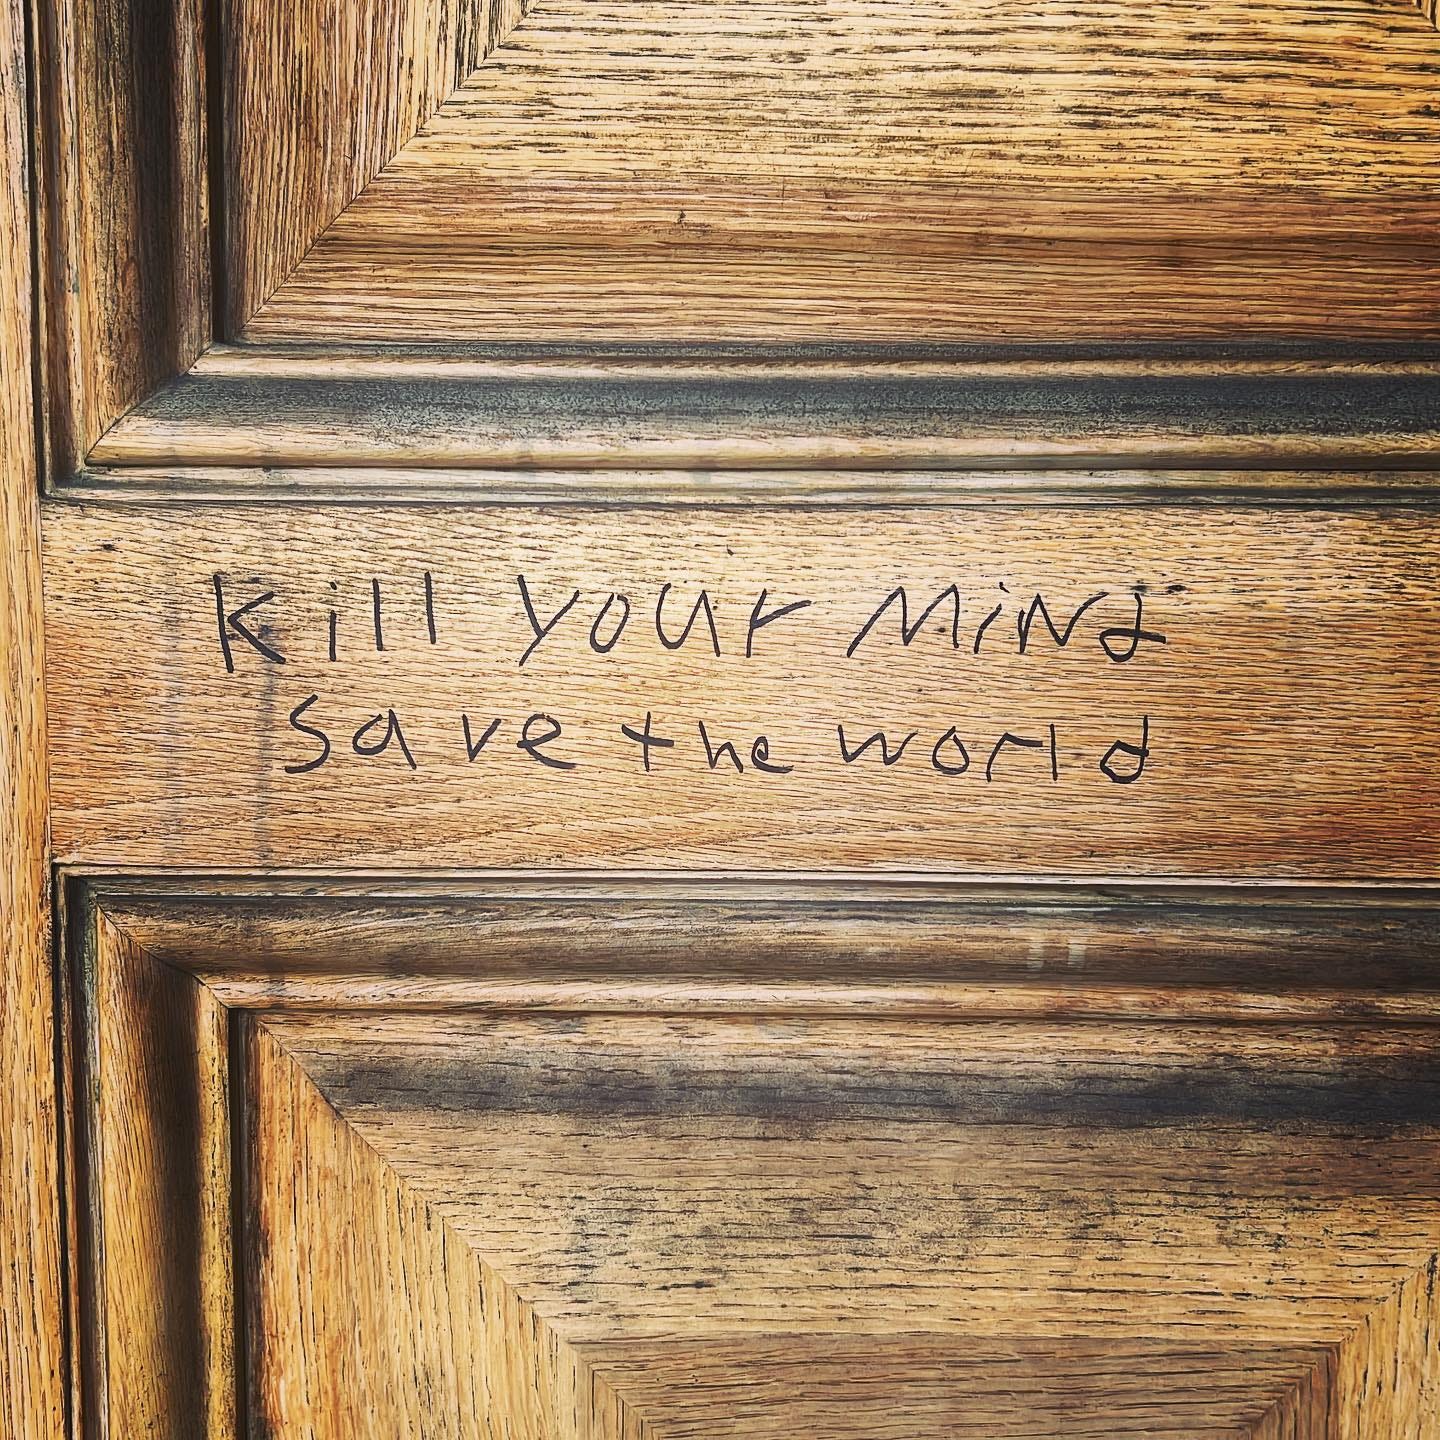 Kill your MiNd
save the world